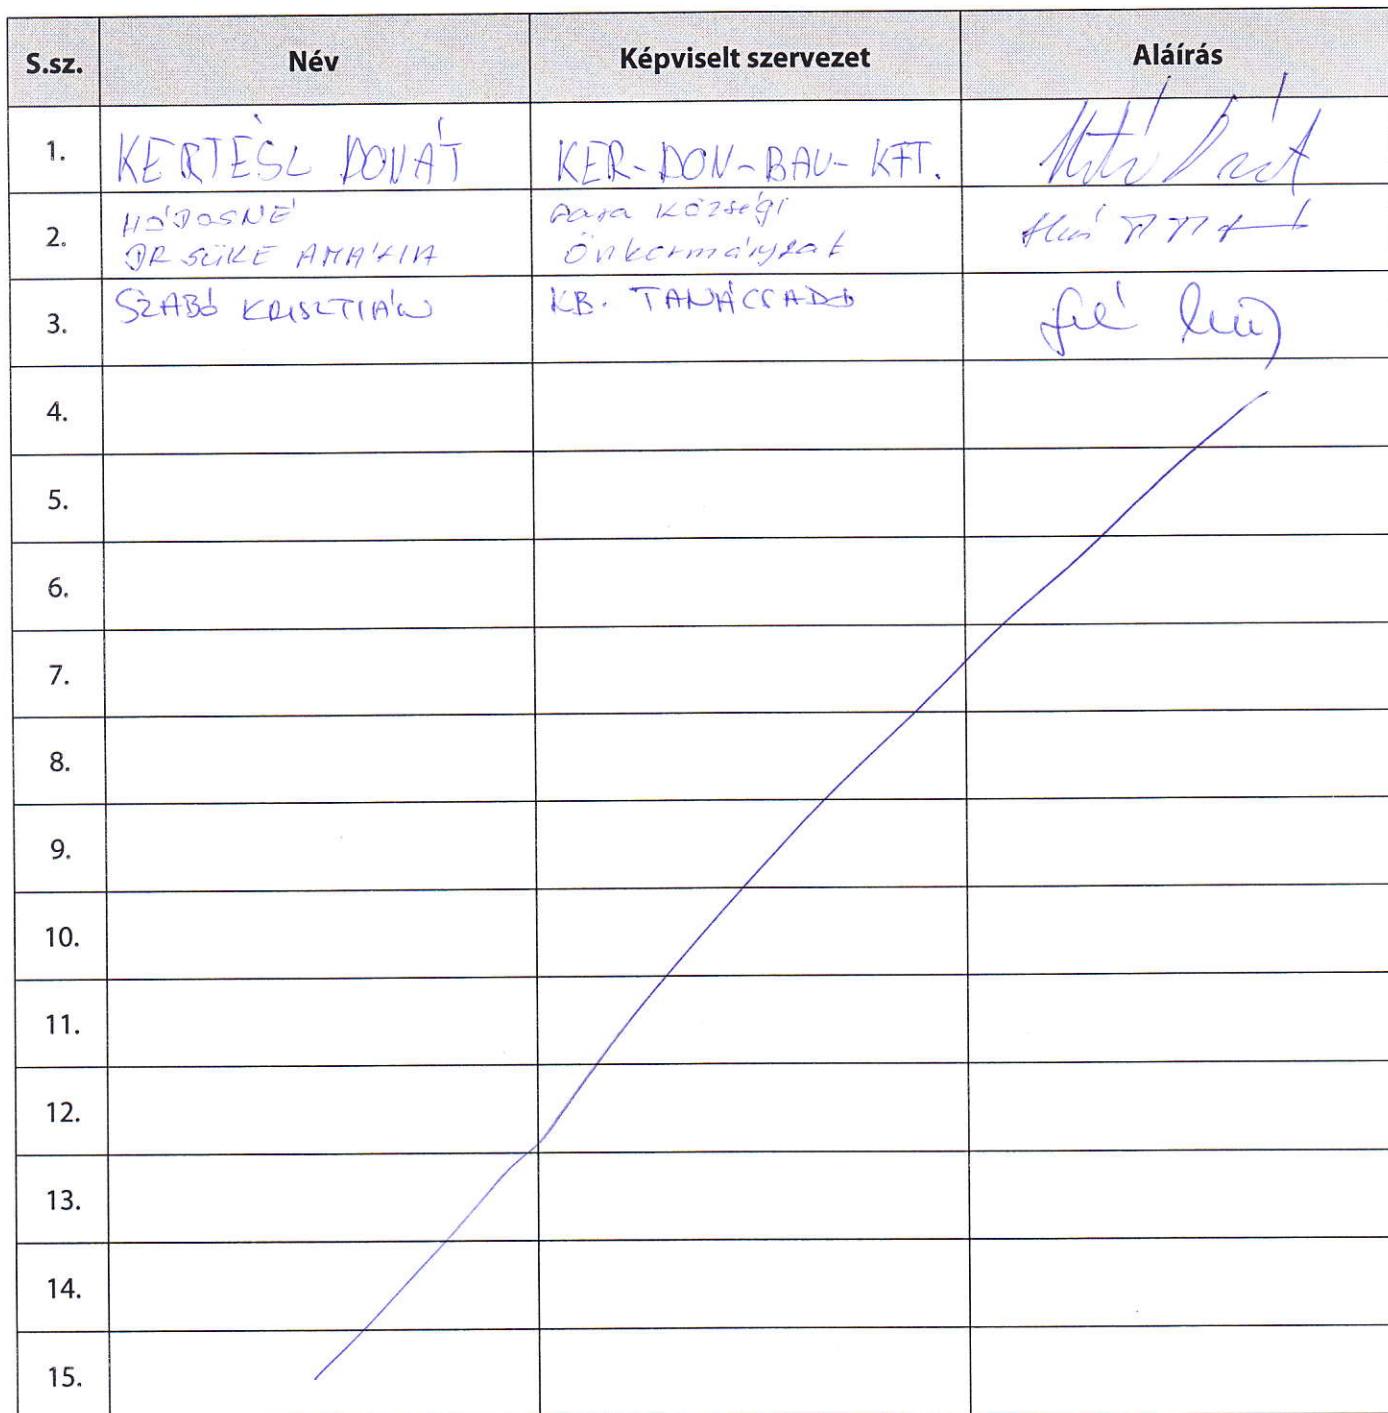 S.sz. Név Képviselt szervezet Aláírás
1. KERTÉSZ DONÁT KER-DON-BAU-KFT.
2. HÓDOSNÉ
DR SÜKE AMÁLIA
községi
Önkormányzat
3. SZABÓ KRISZTIÁN KB. TANÁCSADÓ
4.
5.
6.
7.
8.
9.
10.
11.
12.
13.
14.
15.